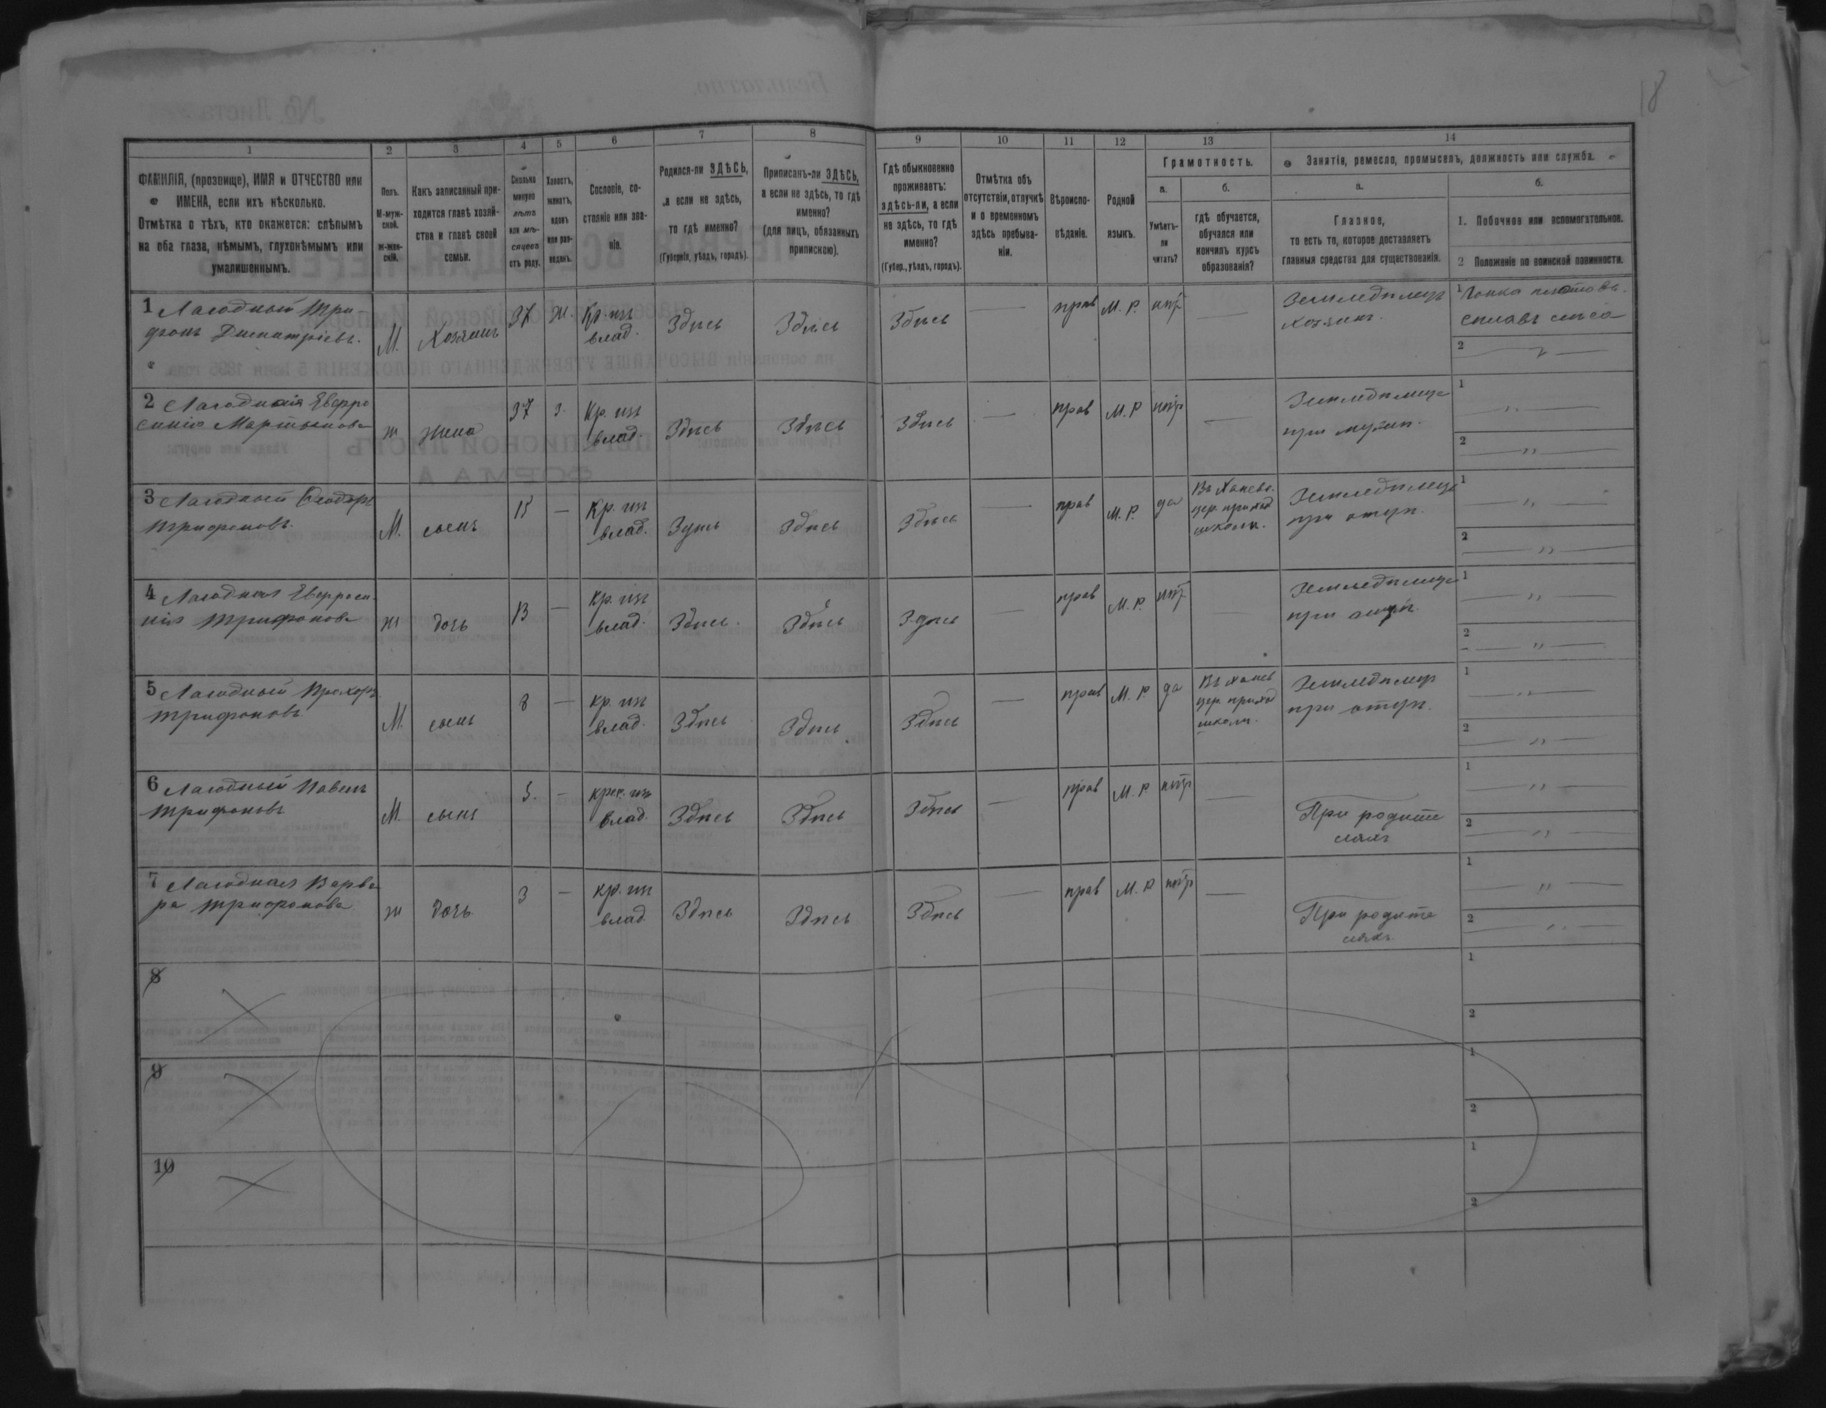 18
1 2 3 4 5 6 7 8 9 10 11 12 13 14
ФАМИЛІЯ, (прозвище), ИМЯ и ОТЧЕСТВО или
ИМЕНА, если ихъ нѣсколько.
Отмѣтка о тѣхъ, кто окажется: слѣпымъ
на оба глаза, нѣмымъ, глухонѣмымъ или
умалишеннымъ.
Полъ.
М-муж-
ской.
Ж-жен-
скій.
Какъ записанный при-
ходится главѣ хозяй-
ства и главѣ своей
семьи.
Сколько
минуло
лѣтъ
или мѣ-
сяцевъ
отъ роду.
Холостъ,
женатъ,
вдовъ
или раз-
веденъ.
Сословіе, со-
стояніе или зва-
ніе.
Родился-ли ЗДѢСЬ,
а если не здѣсь,
то гдѣ именно?
(Губернія, уѣздъ, городъ).
Приписанъ-ли ЗДѢСЬ,
а если не здѣсь, то гдѣ
именно?
(для лицъ, обязанныхъ
припискою).
Гдѣ обыкновенно
проживаетъ:
здѣсь-ли, а если
не здѣсь, то гдѣ
именно?
(Губер., уѣздъ, городъ).
Отмѣтка объ
отсутствіи, отлучкѣ
и о временномъ
здѣсь пребыва-
ніи.
Вѣроиспо-
вѣданіе.
Родной
языкъ.
Грамотность.
а.
Умѣетъ-
ли
читать?
б.
гдѣ обучается,
обучался или
кончилъ курсъ
образованія?
Занятія, ремесло, промыселъ, должность или служба.
а.
Главное,
то есть то, которое доставляетъ
главныя средства для существованія.
б.
1. Побочное или вспомогательное.
2 Положеніе по воинской повинности.
1 Лагодный Три
фонъ Димитріевъ.
М. Хозяинъ 37 Ж. Кр. изъ
влад. Здѣсь Здѣсь Здѣсь — прав М. Р. нѣтъ —
Земледѣлецъ
хозяинъ.
1 Гонка плотовъ.
сплавъ лѣса
2 —
2 Лагодная Евфро
синія Мартынова
ж жена 37 з. Кр. изъ
влад. Здѣсь Здѣсь Здѣсь — прав М. Р. нѣтъ —
Земледѣлица
при мужѣ.
1 „
2 — „ —
3 Лагодный Ѳеодоръ
Трифоновъ.
М. сынъ 15 — Кр. изъ
влад. Здѣсь Здѣсь Здѣсь — прав М. Р. да
церк. приход
школѣ.
при отцѣ.
1 — „ —
2 — „ —
4 Лагодная Евфроси-
нія Трифонова
ж дочь 13 — Кр. изъ
влад. Здѣсь. Здѣсь Здѣсь — прав М. Р. нѣтъ —
Земледѣлица
при отцѣ.
1 — „ —
2 — „ —
5 Лагодный Прохоръ
Трифоновъ
М. сынъ 8 — Кр. изъ
влад. Здѣсь Здѣсь Здѣсь — прав М. Р. да
цер. приход
школѣ.
Земледѣлецъ
при отцѣ.
1 — „ —
2 — „ —
6 Лагодный Павелъ
Трифоновъ
М. сынъ 5. — крес. изъ
влад. Здѣсь Здѣсь Здѣсь — прав М. Р. нѣтъ —
При родите
ляхъ
1 — „ —
2 — „ —
7 Лагодная Варва
ра Трифонова
ж дочь 3 — кр. изъ
влад. Здѣсь Здѣсь Здѣсь — прав М. Р. нѣтъ —
При родите
ляхъ.
1 — „ —
2 — „ —
8
1
2
9
1
2
10
1
2